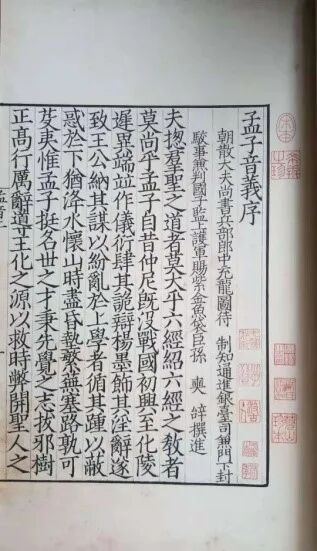 孟子音義序
朝散大夫尚書兵部郎中充龍圖待 制知通進銀臺司兼門下封
駮事兼判國子監上護軍賜紫金魚袋臣孫 奭 撰進
夫揔羣聖之道者莫大乎六經紹六經之教者
莫尚乎孟子自昔仲尼旣没戰國初興至化陵
遲異端並作儀衍肆其詭辯楊墨飾其淫辭遂
致王公納其謀以紛亂於上學者循其踵以蔽
惑於下猶洚水懷山時盡昏墊繁蕪塞路孰可
芟夷惟孟子挺名世之才秉先覺之志拔邪樹
正高行厲辭導王化之源以救時弊開聖人之